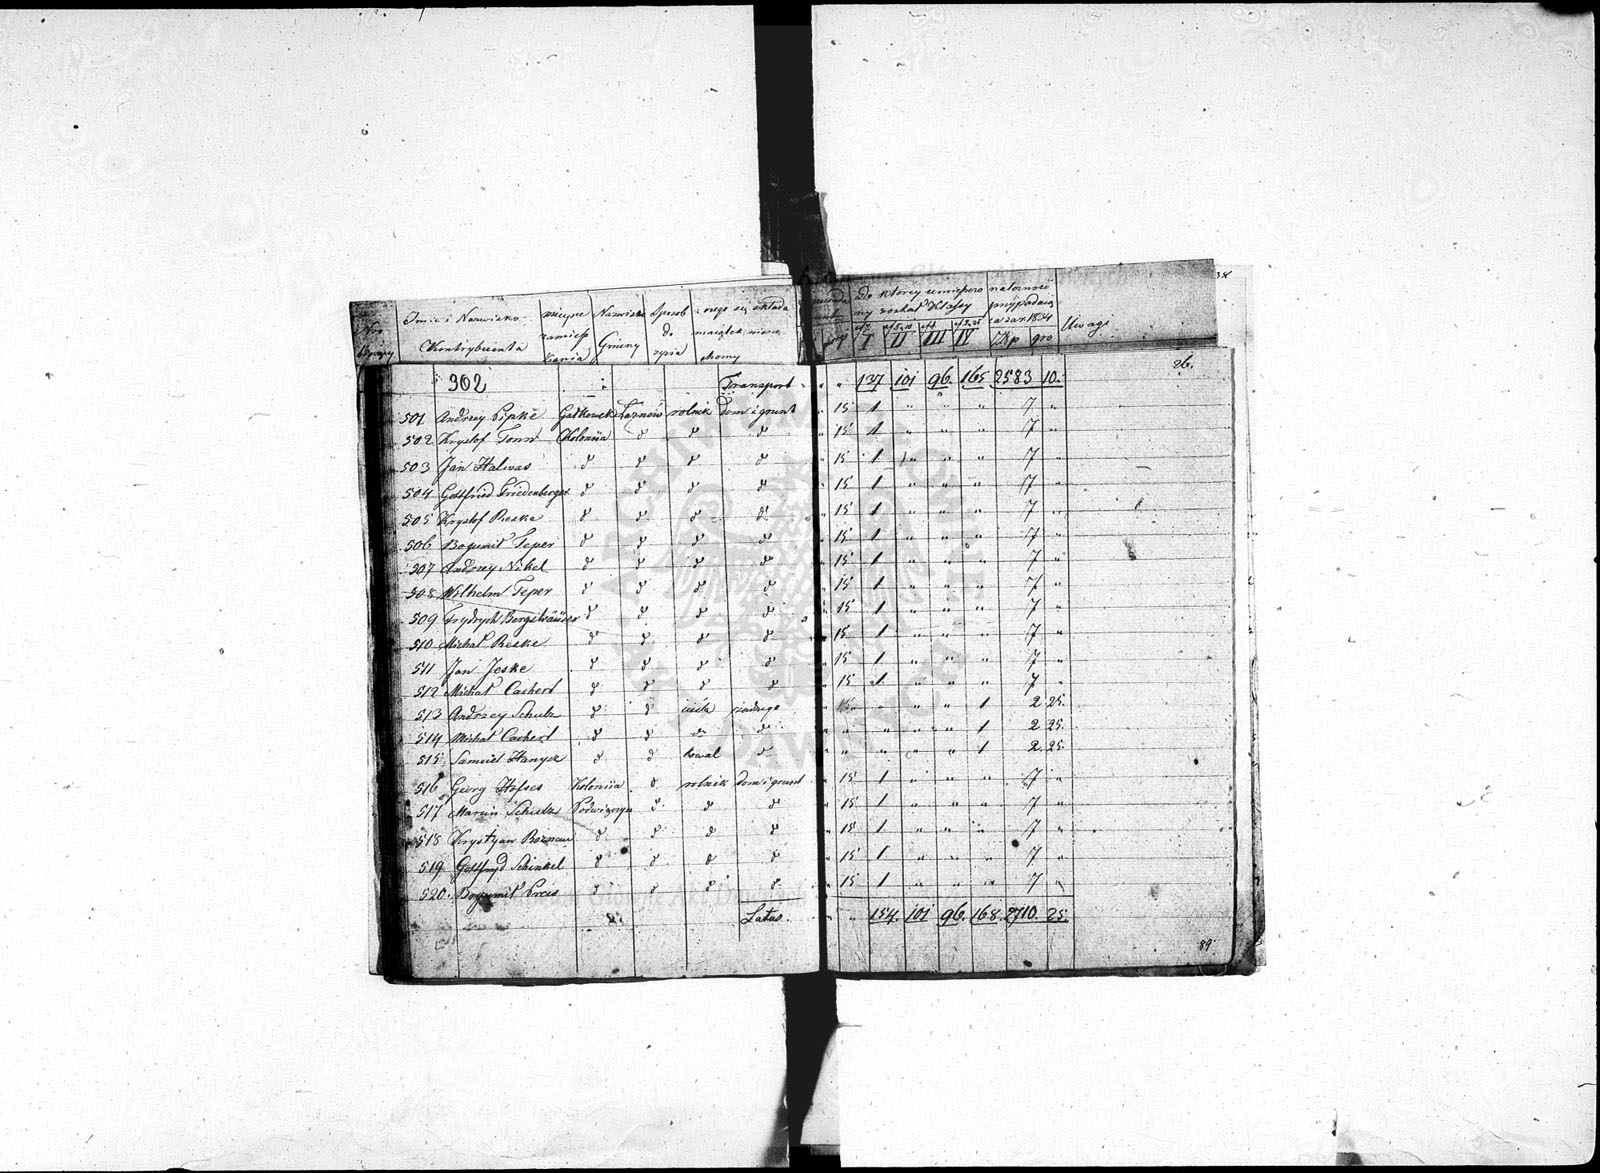 Imie i Nazwisko Nazwisko Sposob z czego się składa Do ktorey umieszczo
Kontrybuenta Gminy do maiątek nieru ny został Klassy przypada
chomy I II III IV Złp gro Uwagi
za rok 1834
26.
302 Transport " " 137 101 96 165 2583 10.
501 Andrzey Pipke Gałkowek Łaznow rolnik dom i grunt " 15 1 " " " 7 "
502 Krysztof Tonn Kolonia d d d " 15 1 " " " 7 "
503 Jan Halwas d d d d " 15 1 " " " 7 "
504 Gottfried Friedenberger d d d d " 15 1 " " " 7 "
505 Krysztof Reske d d d d " 15 1 " " " 7 "
506 Bogumił Teper d d d d " 15 1 " " " 7 "
507 Andrzey Nikel d d d d " 15 1 " " " 7 "
508 Wilhelm Teper d d d d " 15 1 " " " 7 "
509 Frydrych d d d d " 15 1 " " " 7 "
510 Michał Reske d d d d " 15 1 " " " 7 "
511 Jan Jeske d d d d " 15 1 " " " 7 "
512 Michał Cachert d d d d " 15 1 " " " 7 "
513 Andrzey Schulz d d cieśla żadnego " " " 1 2 25.
514 Michał Cachert d d d d " " " " " 1 2 25.
515 Samuel d d kowal d " " " " " 1 2 25.
516 Georg Hofses Kolonia d rolnik dom i grunt " 15 1 " " " 7 "
517 Marcin Schulz d d d " 15 1 " " " 7 "
518 Krystyan d d d d " 15 1 " " " 7 "
519 Gottfryd Schinkel d d d d " 15 1 " " " 7 "
520. Bogumił d d d d " 15 1 " " " 7 "
Latus. " " 154. 101 96. 168. 2710. 25.
89